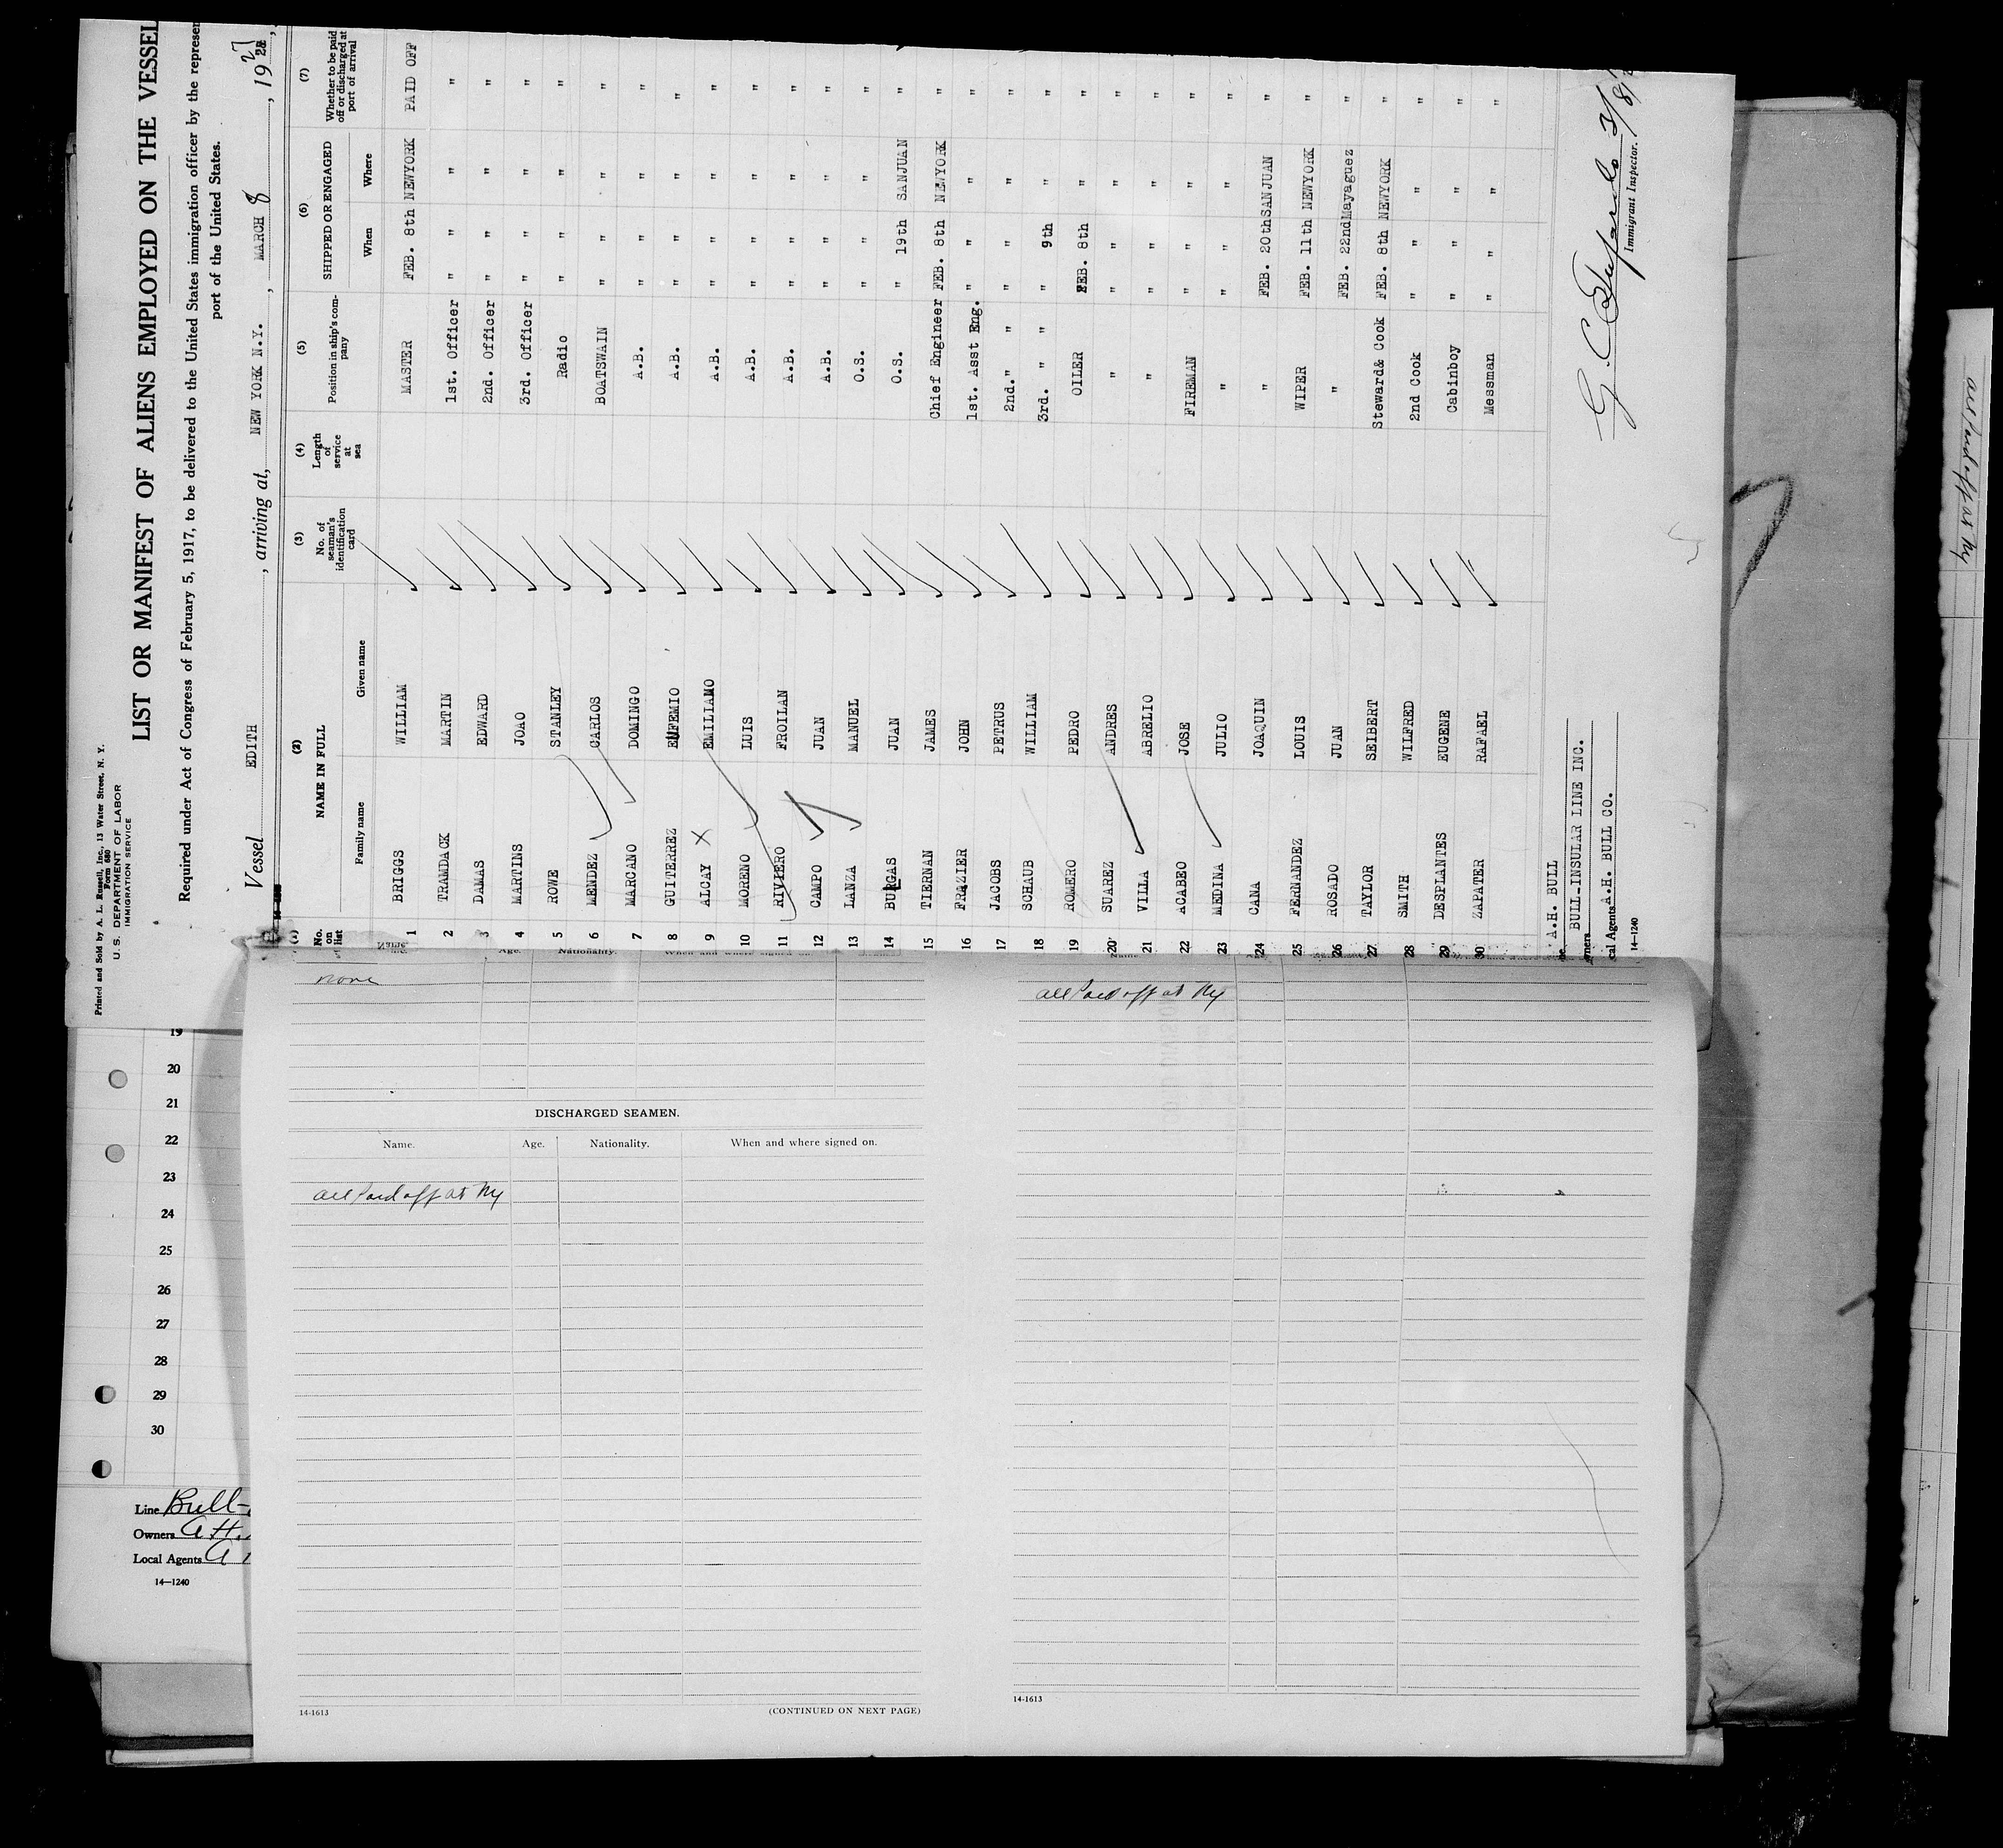 Printed and Sold by A. L. Russell, Inc., 13 Water Street, N. Y.
Form 680
U. S. DEPARTMENT OF LABOR
IMMIGRATION SERVICE
LIST OR MANIFEST OF ALIENS EMPLOYED ON THE VESSEL
Required under Act of Congress of February 5, 1917, to be delivered to the United States immigration officer by the represen
port of the United States.
Vessel EDITH, arriving at, NEW YORK N.Y., MARCH 8, 1927
(1) (2) (3) (4) (5) (6) (7)
No. on list NAME IN FULL No. of seaman's identification card Length of service at sea Position in ship's company SHIPPED OR ENGAGED Whether to be paid off or discharged at port of arrival
Family name Given name When Where
1 BRIGGS WILLIAM MASTER FEB. 8th NEWYORK PAID OFF
2 TRAMDACK MARTIN 1st. Officer " " " "
3 DAMAS EDWARD 2nd. Officer " " " "
4 MARTINS JOAO 3rd. Officer " " " "
5 ROWE STANLEY Radio " " " "
6 MENDEZ CARLOS BOATSWAIN " " " "
7 MARCANO DOMINGO A.B. " " " "
8 GUITERREZ EUFEMIO A.B. " " " "
9 ALCAY X EMILIANO A.B. " " " "
10 MORENO LUIS A.B. " " " "
11 RIVIERO FROILAN A.B. " " " "
12 CAMPO JUAN A.B. " " " "
13 LANZA MANUEL O.S. " " " "
14 BURGAS JUAN O.S. " 19th SANJUAN "
15 TIERNAN JAMES Chief Engineer FEB. 8th NEWYORK "
16 FRAZIER JOHN 1st. Asst Eng. " " " "
17 JACOBS PETRUS 2nd. " " " " " "
18 SCHAUB WILLIAM 3rd. " " " 9th " "
19 ROMERO PEDRO OILER FEB. 8th " "
20 SUAREZ ANDRES " " " " "
21 VILLA ABRELIO " " " " "
22 ACABEO JOSE FIREMAN " " " "
23 MEDINA JULIO " " " " "
24 CANA JOAQUIN " FEB. 20th SANJUAN "
25 FERNANDEZ LOUIS WIPER FEB. 11th NEWYORK "
26 ROSADO JUAN " FEB. 22nd Mayaguez "
27 TAYLOR SEIBERT Steward& Cook FEB. 8th NEWYORK "
28 SMITH WILFRED 2nd Cook " " " "
29 DESPLANTES EUGENE Cabinboy " " " "
30 ZAPATER RAFAEL Messman " " " "
A.H. BULL
BULL-INSULAR LINE INC.
cal Agents A.H. BULL CO.
14-1240
Immigrant Inspector.
none
DISCHARGED SEAMEN.
Name. Age. Nationality. When and where signed on.
all Paid off at Ny
14-1613
(CONTINUED ON NEXT PAGE)
all Paid off at Ny
14-1613
19
20
21
22
23
24
25
26
27
28
29
30
Line Bull-
Owners A H.
Local Agents A
14—1240
all Paid off at Ny